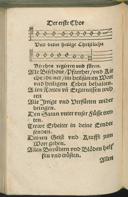 Der erste Chor
Und deine heilige Christliche
Kirchen regieren und füren.
Alle Bischoue/ Pfarrher/ und Kir
chendiener/ im heilsamen Wort
und heiligem Leben behalten.
Allen Rotten und Ergernissen weh
ren.
Alle Irrige und Verfürten wider
bringen.
Den Satan unter unser Füsse tret
ten.
Trewe Erbeiter in deine Ernte
senden.
Deinen Geist und Krafft zum
Wort geben.
Allen Betrübten und Blöden helf
fen und trösten.
Allen